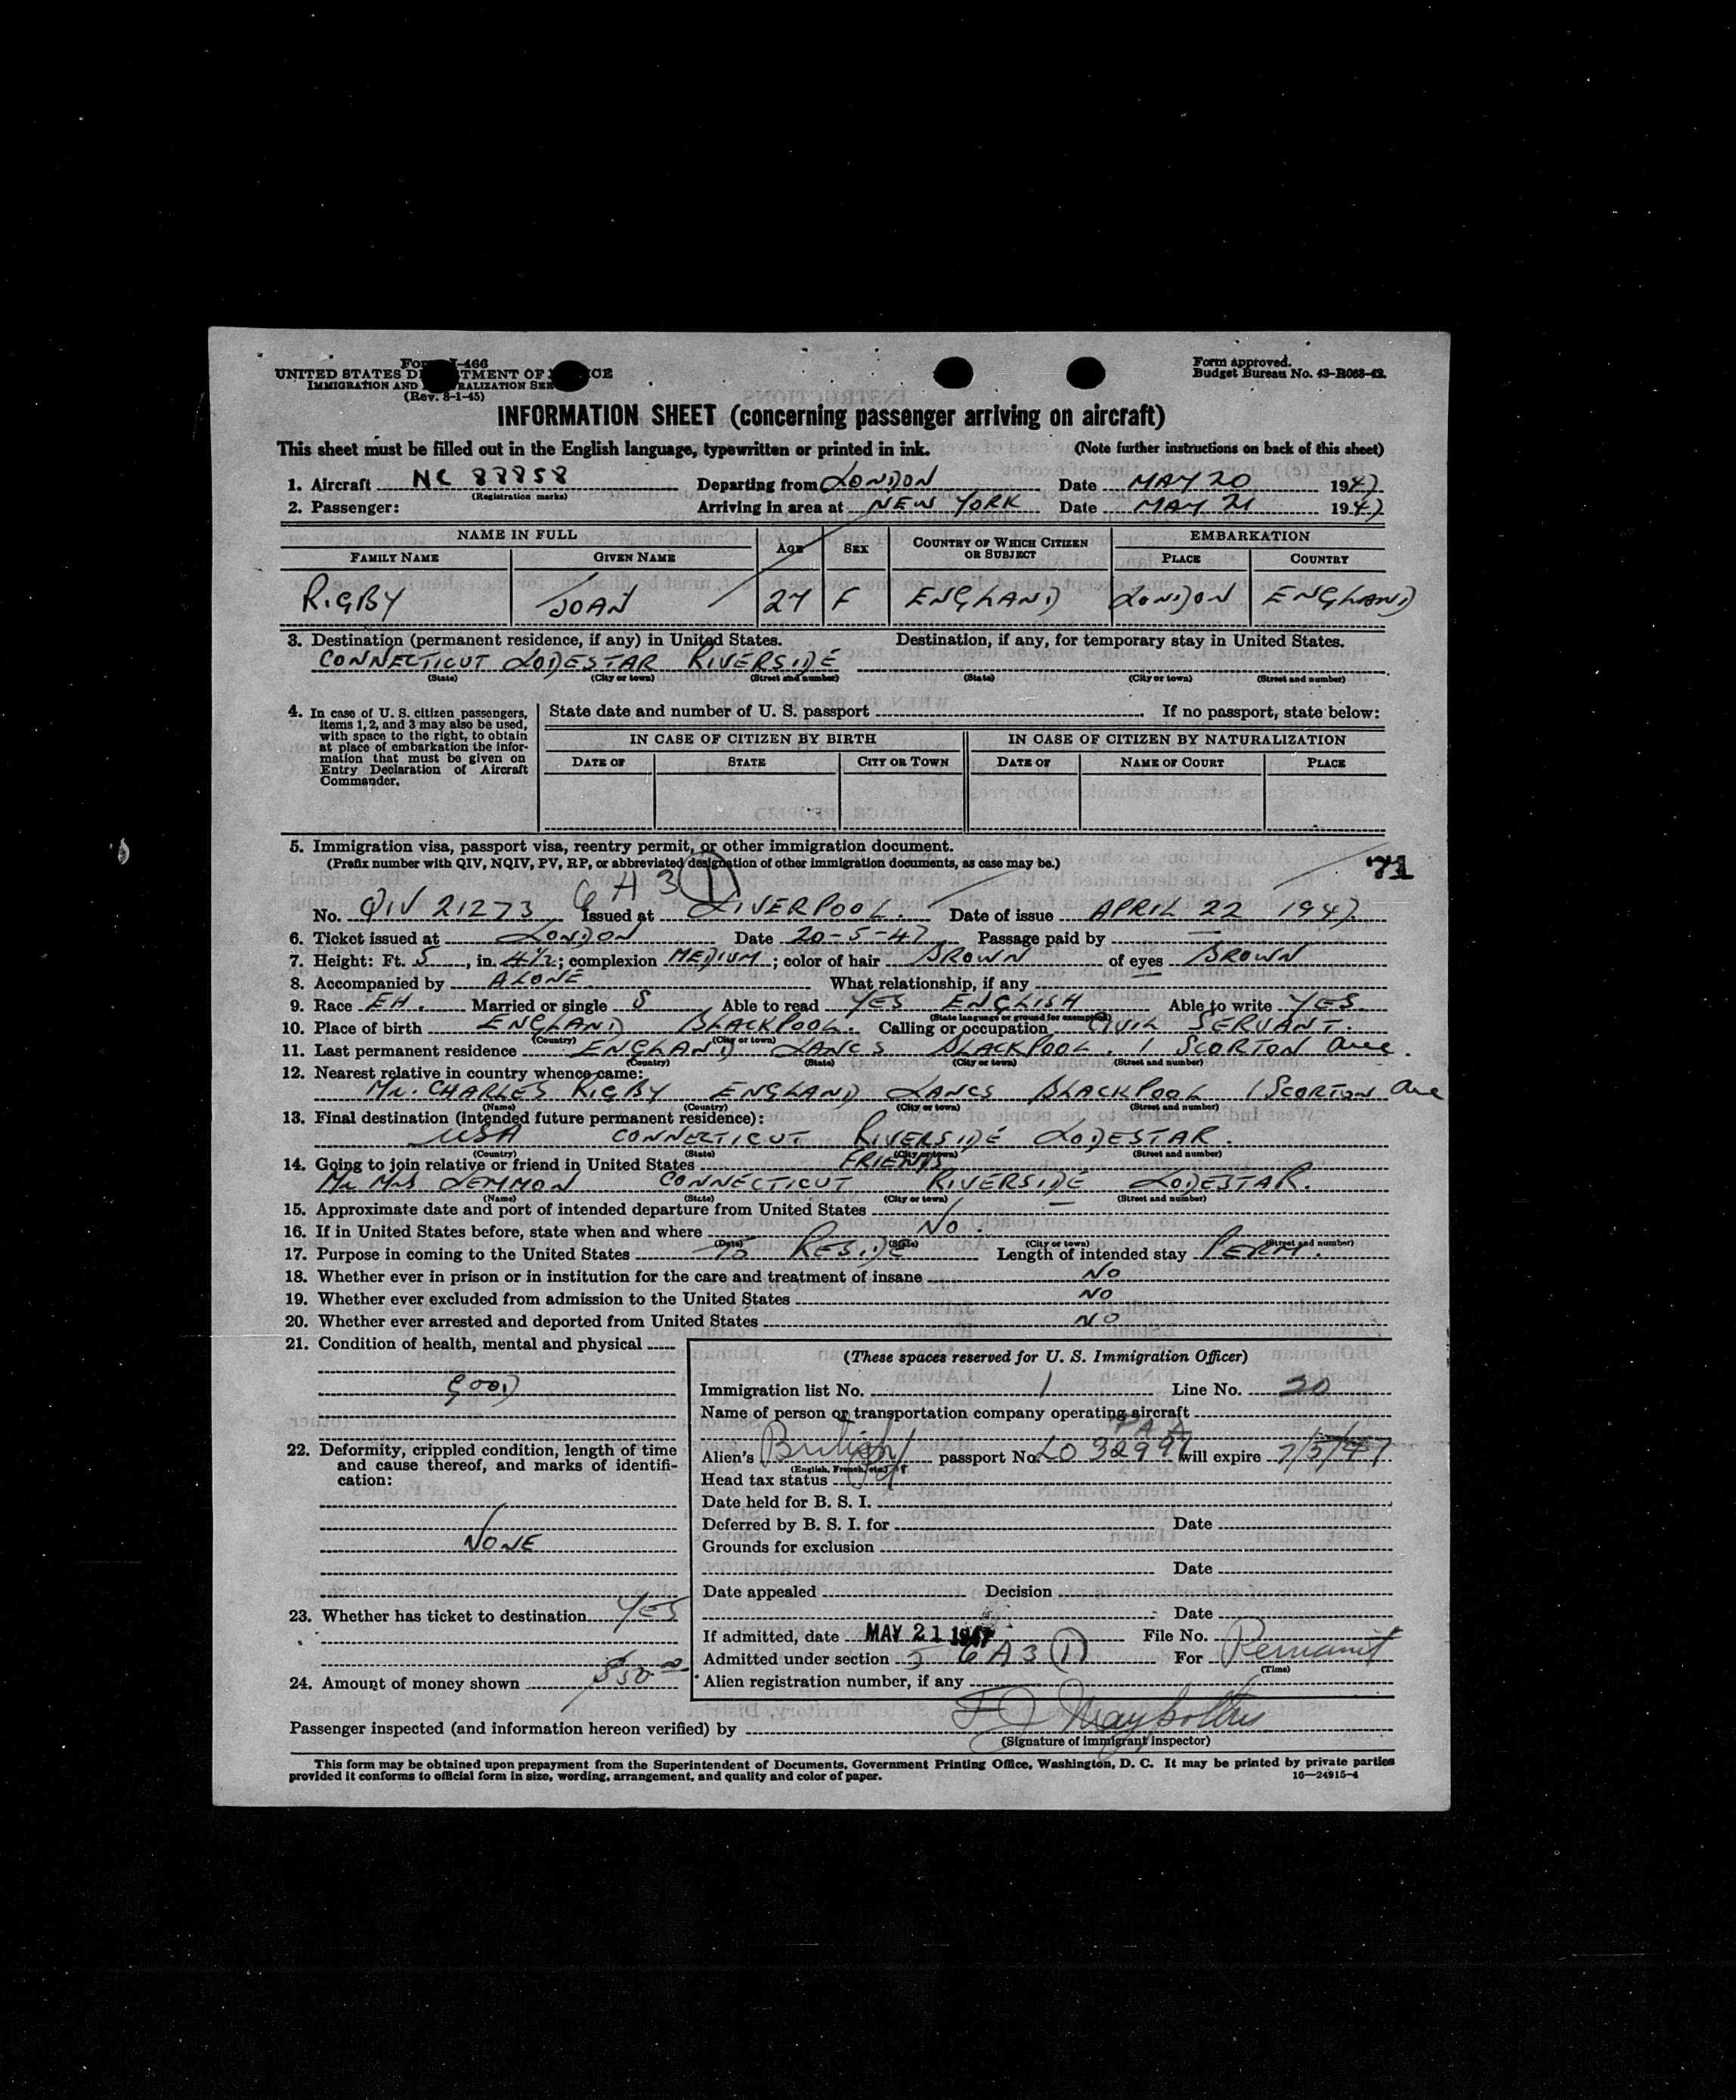 Form I-466
UNITED STATES DEPARTMENT OF JUSTICE
IMMIGRATION AND NATURALIZATION SERVICE
(Rev. 8-1-45)
Form approved.
Budget Bureau No. 43-R063-42.
INFORMATION SHEET (concerning passenger arriving on aircraft)
This sheet must be filled out in the English language, typewritten or printed in ink. (Note further instructions on back of this sheet)
1. Aircraft NC 88858 Departing from LONDON Date MAY 20 1947
(Registration marks)
2. Passenger: Arriving in area at NEW YORK Date MAY 21 1947
NAME IN FULL AGE SEX COUNTRY OF WHICH CITIZEN OR SUBJECT EMBARKATION
FAMILY NAME GIVEN NAME PLACE COUNTRY
RIGBY JOAN 27 F ENGLAND LONDON ENGLAND
3. Destination (permanent residence, if any) in United States. Destination, if any, for temporary stay in United States.
CONNECTICUT LODESTAR RIVERSIDE
(State) (City or town) (Street and number) (State) (City or town) (Street and number)
4. In case of U. S. citizen passengers, items 1, 2, and 3 may also be used, with space to the right, to obtain at place of embarkation the information that must be given on Entry Declaration of Aircraft Commander.
State date and number of U. S. passport If no passport, state below:
IN CASE OF CITIZEN BY BIRTH IN CASE OF CITIZEN BY NATURALIZATION
DATE OF STATE CITY OR TOWN DATE OF NAME OF COURT PLACE
5. Immigration visa, passport visa, reentry permit, or other immigration document.
(Prefix number with QIV, NQIV, PV, RP, or abbreviated designation of other immigration documents, as case may be.)
71
6 A 3 (1)
No. QIV 21273 Issued at LIVERPOOL. Date of issue APRIL 22 1947
6. Ticket issued at LONDON Date 20-5-47 Passage paid by —
7. Height: Ft. 5, in. 4½; complexion MEDIUM; color of hair BROWN of eyes BROWN
8. Accompanied by ALONE What relationship, if any —
9. Race EH. Married or single S Able to read YES ENGLISH Able to write YES.
(State language or ground for exemption)
10. Place of birth ENGLAND BLACKPOOL. Calling or occupation CIVIL SERVANT.
(Country) (City or town)
11. Last permanent residence ENGLAND LANCS BLACKPOOL. 1 SCORTON Ave.
(Country) (State) (City or town) (Street and number)
12. Nearest relative in country whence came:
Mr. CHARLES RIGBY ENGLAND LANCS BLACKPOOL 1 SCORTON Ave
(Name) (Country) (City or town) (Street and number)
13. Final destination (intended future permanent residence):
USA CONNECTICUT RIVERSIDE LODESTAR.
(Country) (State) (City or town) (Street and number)
14. Going to join relative or friend in United States FRIENDS
Mr Mrs LEMMON CONNECTICUT RIVERSIDE LODESTAR.
(Name) (State) (City or town) (Street and number)
15. Approximate date and port of intended departure from United States —
16. If in United States before, state when and where NO.
(Date) (State) (City or town) (Street and number)
17. Purpose in coming to the United States TO RESIDE Length of intended stay PERM.
18. Whether ever in prison or in institution for the care and treatment of insane NO
19. Whether ever excluded from admission to the United States NO
20. Whether ever arrested and deported from United States NO
21. Condition of health, mental and physical
GOOD
22. Deformity, crippled condition, length of time and cause thereof, and marks of identification:
NONE
23. Whether has ticket to destination YES
24. Amount of money shown $50.00
(These spaces reserved for U. S. Immigration Officer)
Immigration list No. 1 Line No. 20
Name of person or transportation company operating aircraft
P A A
Alien's British passport No. LO 32997 will expire 7/5/47
(English, French, etc.)
Head tax status
Date held for B. S. I.
Deferred by B. S. I. for Date
Grounds for exclusion
Date
Date appealed Decision
Date
If admitted, date MAY 21 1947 File No.
Admitted under section 6 A 3 (1) For Permanent
(Time)
Alien registration number, if any
Passenger inspected (and information hereon verified) by
(Signature of immigrant inspector)
This form may be obtained upon prepayment from the Superintendent of Documents, Government Printing Office, Washington, D. C. It may be printed by private parties
provided it conforms to official form in size, wording, arrangement, and quality and color of paper. 16—24915-4